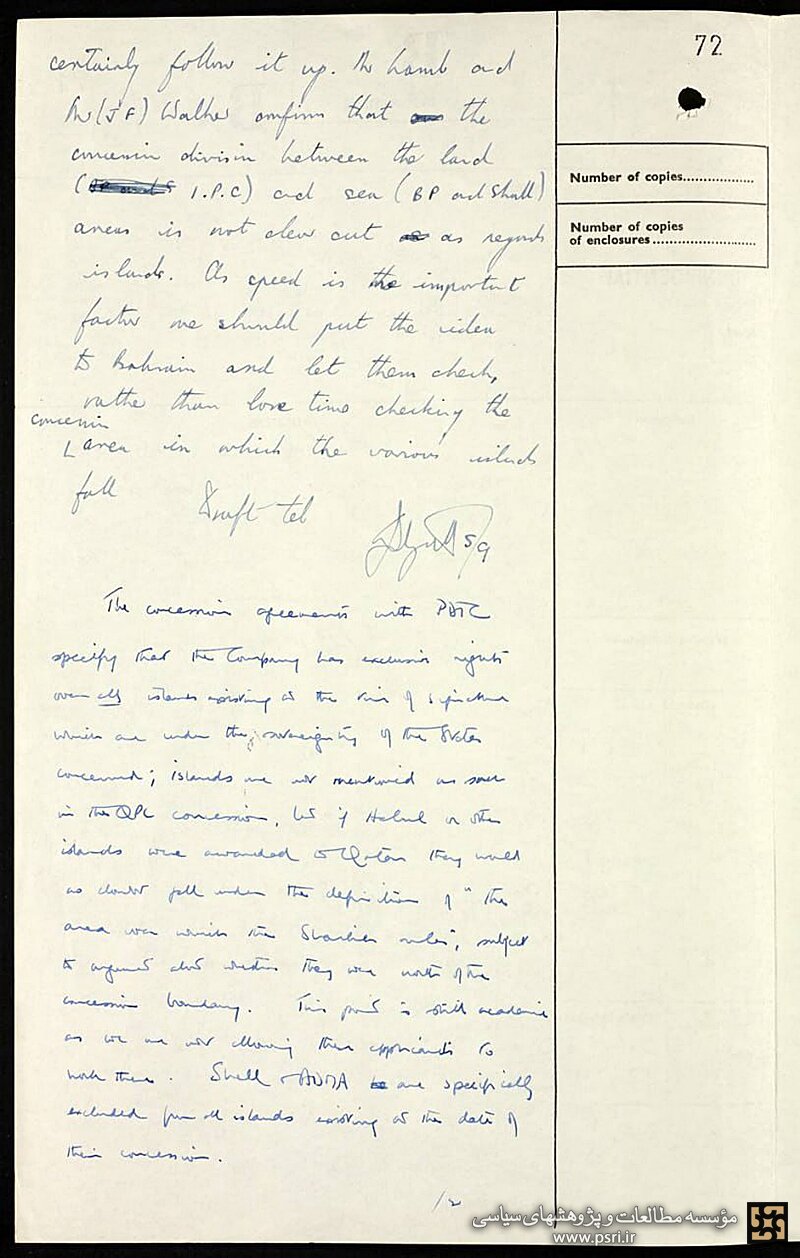 72
certainly follow it up. Mr Lamb and
Mr (J F) Walker confirm that the
concession division between the land
(I.P.C) and sea (BP and Shell)
areas is not clear cut as regards
islands. As speed is the important
factor we should put the idea
to Bahrain and let them check,
rather than lose time checking the
concession
area in which the various islands
fall
Draft tel
5/9
Number of copies
Number of copies
of enclosures
The concession agreements with PDTC
specify that the Company has exclusive rights
over all islands existing at the time of signature
which are under the sovereignty of the States
concerned; islands are not mentioned as such
in the QPC concession, but if Halul or other
islands were awarded to Qatar they would
no doubt fall under the definition of "the
area over which the Shaikh rules", subject
to argument about whether they were north of the
concession boundary. This point is still academic
as we are not allowing these applicants to
work there. Shell & ADMA are specifically
excluded from all islands existing at the date of
their concession.
/2
مؤسسه مطالعات و پژوهشهای سیاسی
www.psri.ir